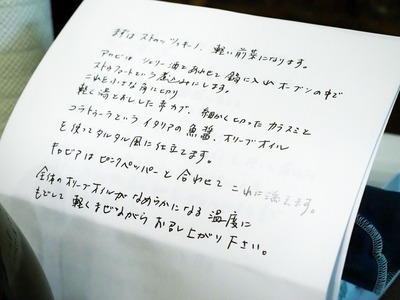 まずは ストゥッツィキーノ、軽い前菜になります。
アワビは シェリー酒とあわせて 鍋に入れ オーブンの中で
ストゥファートという煮込みにします。
これを小さな角に切り
軽く湯どおしした 赤カブ、細かく切った カラスミと
コラトゥーラという イタリアの 魚醤、オリーブオイル
を使って タルタル風に仕立てます。
キャビアは ピンクペッパーと 合わせて これに添えます。
全体の オリーブオイルが なめらかになる 温度に
もどして 軽くまぜながら お召し上がり下さい。